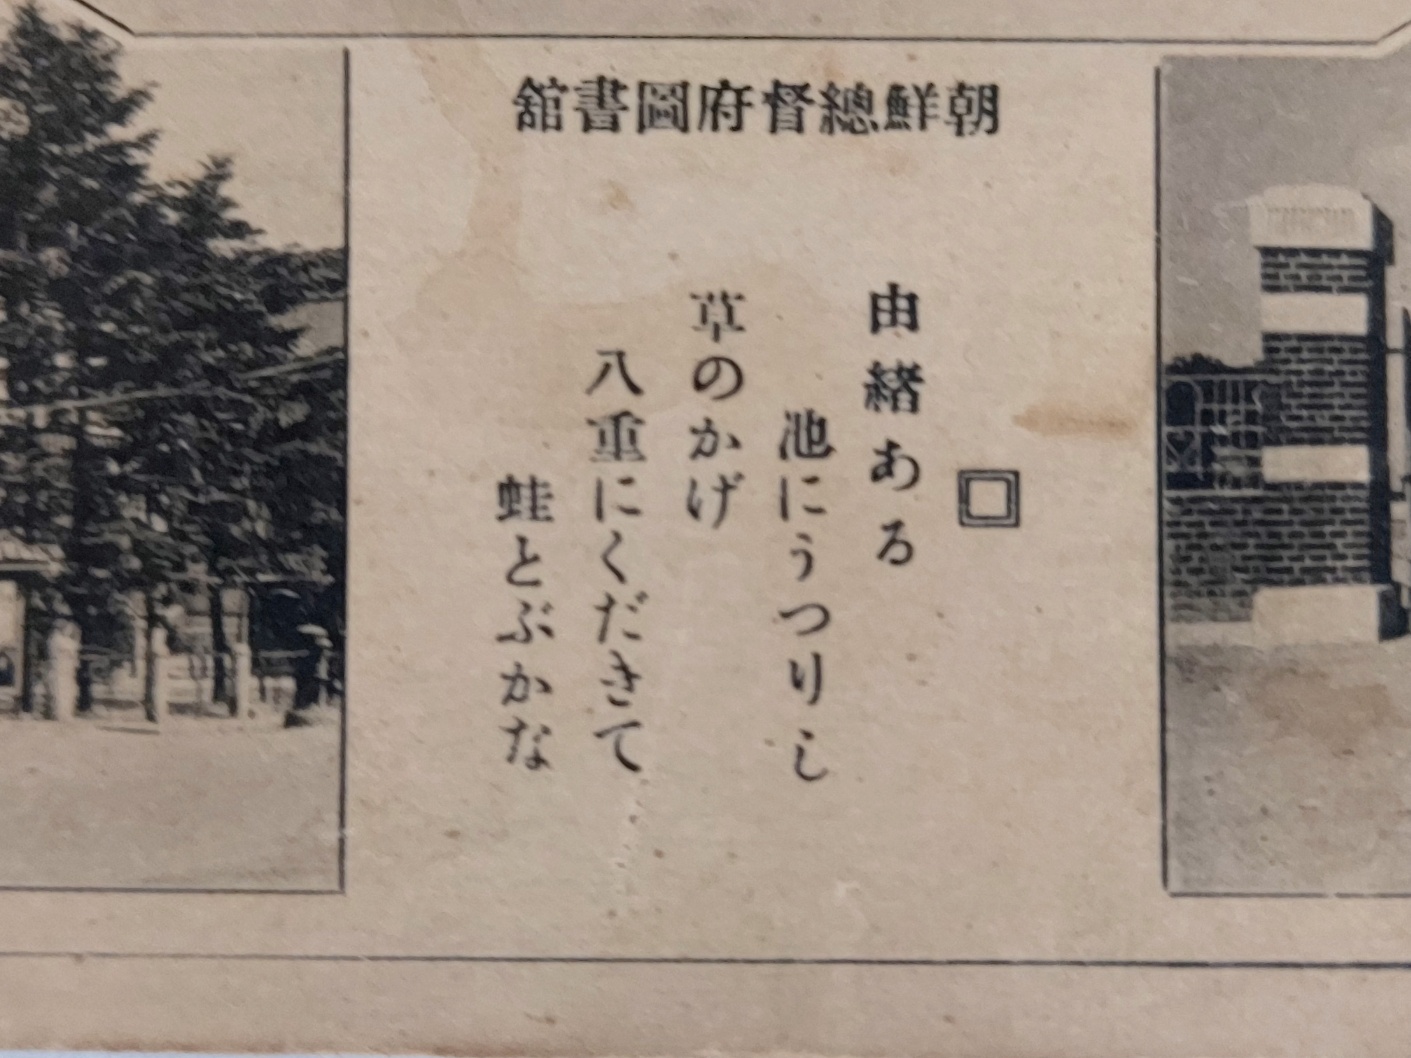 朝鮮總督府圖書館
由緒ある
池にうつりし
草のかげ
八重にくだきて
蛙とぶかな